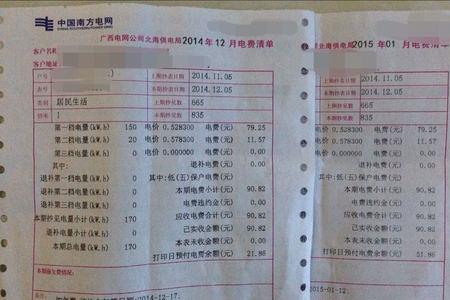 中国南方电网
CHINA SOUTHERN POWER GRID
广西电网公司北海供电局2014年12月电费清单
客户名称
客户地址
户号 上期抄表日期 2014.11.05
表号 本期抄表日期 2014.12.05
类别 居民生活 上期抄见数 665
倍率 1 本期抄见数 835
第一档电量(kW.h) 150 电价 0.528300 电费(元) 79.25
第二档电量(kW.h) 20 电价 0.578300 电费(元) 11.57
第三档电量(kW.h) 0 电价 0.000000 电费(元) 0.00
其中: 退补电费(元) 0.00
退补第一档电量(kW.h) 0 其中:低(五)保户电费(元) 0.00
退补第二档电量(kW.h) 0 本期电费小计(元) 90.82
退补第三档电量(kW.h) 0 电费违约金(元) 0.00
本期抄见电量小计(kW.h) 170 应收电费合计(元) 90.82
退补电量小计(kW.h) 0 已实收金额(元) 90.82
本期总电量(kW.h) 170 本表未收金额(元) 0.00
打印日预付电费余额(元) 21.86
欠费情况:
2014-12-17
供电局2015年01月电费清单
上期抄表日期 2014.11.05
本期抄表日期 2014.12.05
上期抄见数 665
本期抄见数 835
电价 0.528300 电费(元) 79.25
电价 0.578300 电费(元) 11.57
电价 0.000000 电费(元) 0.00
退补电费(元) 0.00
其中:低(五)保户电费(元) 0.00
本期电费小计(元) 90.82
电费违约金(元) 0.00
应收电费合计(元) 90.82
已实收金额(元) 90.82
本表未收金额(元) 0.00
打印日预付电费余额(元) 51.86
2015-01-12